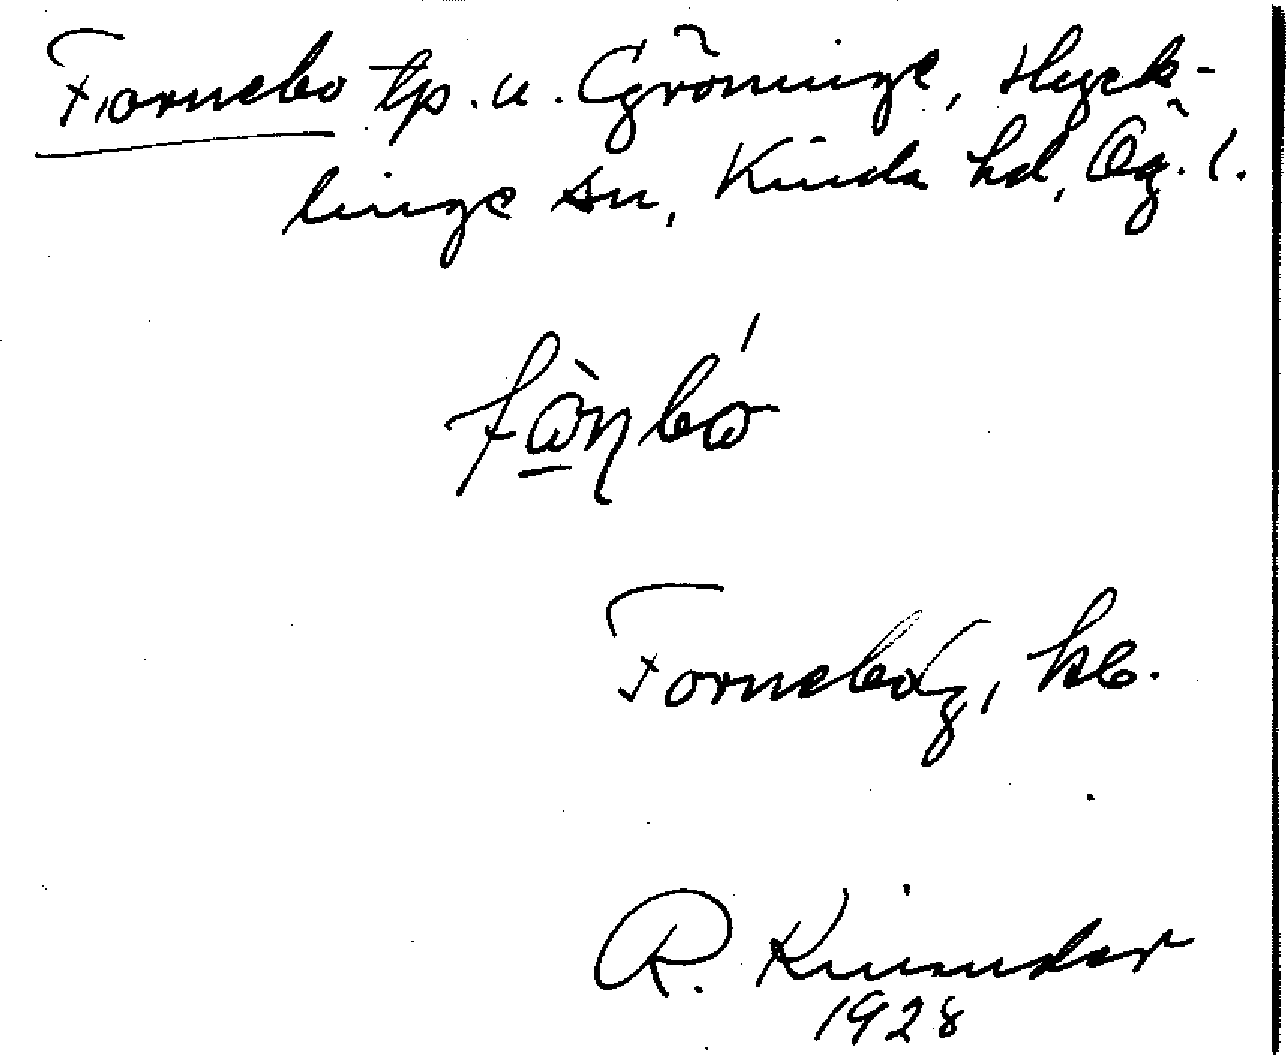 Fornebo tp. u. Gröninge, Hyck-
linge sn, Kinda hd, Ög. l.
fò̲ŋbó
Forneboζ, kb.
R. Kinander
1928